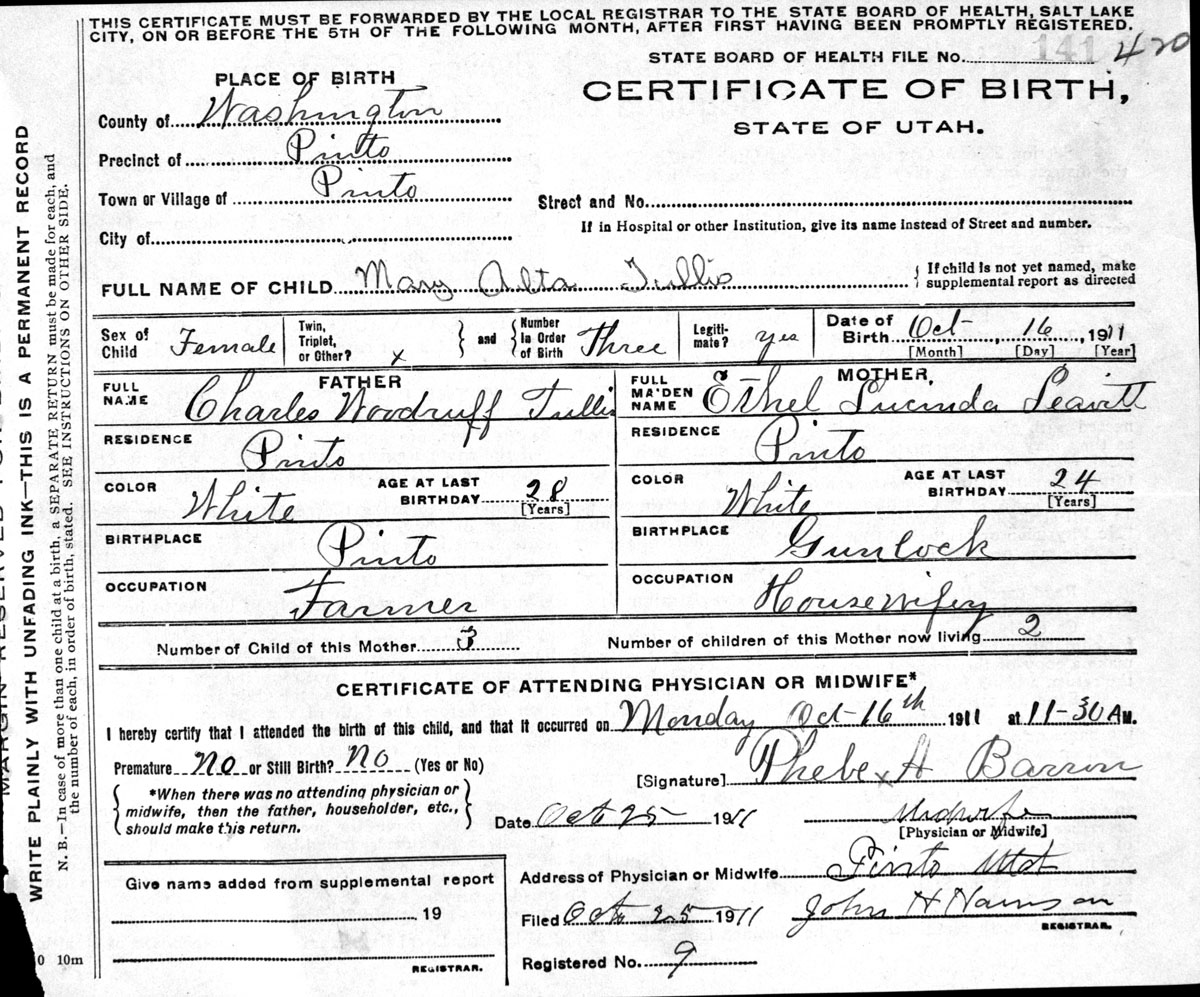 THIS CERTIFICATE MUST BE FORWARDED BY THE LOCAL REGISTRAR TO THE STATE BOARD OF HEALTH, SALT LAKE
CITY, ON OR BEFORE THE 5TH OF THE FOLLOWING MONTH, AFTER FIRST HAVING BEEN PROMPTLY REGISTERED.
STATE BOARD OF HEALTH FILE No. 141 420
PLACE OF BIRTH
CERTIFICATE OF BIRTH,
STATE OF UTAH.
County of Washington
Precinct of Pinto
Town or Village of Pinto
Street and No.
City of
If in Hospital or other Institution, give its name instead of Street and number.
FULL NAME OF CHILD Mary Alta Tullis
{ If child is not yet named, make
supplemental report as directed
Sex of Child Female
Twin, Triplet, or Other? x } and { Number in Order of Birth Three
Legitimate? yes
Date of Birth Oct - 16, 1911
[Month] [Day] [Year]
FATHER
FULL NAME Charles Woodruff Tullis
RESIDENCE Pinto
COLOR White AGE AT LAST BIRTHDAY 28 [Years]
BIRTHPLACE Pinto
OCCUPATION Farmer
MOTHER,
FULL MAIDEN NAME Ethel Lucinda Leavitt
RESIDENCE Pinto
COLOR White AGE AT LAST BIRTHDAY 24 [Years]
BIRTHPLACE Gunlock
OCCUPATION Housewifery
Number of Child of this Mother 3 Number of children of this Mother now living 2
CERTIFICATE OF ATTENDING PHYSICIAN OR MIDWIFE*
I hereby certify that I attended the birth of this child, and that it occurred on Monday Oct-16th 1911 at 11-30 A M.
Premature No or Still Birth? No (Yes or No)
[Signature] Phebe A Barron
*When there was no attending physician or
midwife, then the father, householder, etc.,
should make this return.
Date Oct 25 1911 Midwife
[Physician or Midwife]
Give name added from supplemental report
19
REGISTRAR.
Address of Physician or Midwife Pinto Utah
Filed Oct 25 1911 John H Harrison
REGISTRAR.
Registered No. 9
WRITE PLAINLY WITH UNFADING INK—THIS IS A PERMANENT RECORD
N. B.—In case of more than one child at a birth, a SEPARATE RETURN must be made for each, and
the number of each, in order of birth, stated. SEE INSTRUCTIONS ON OTHER SIDE.
10m